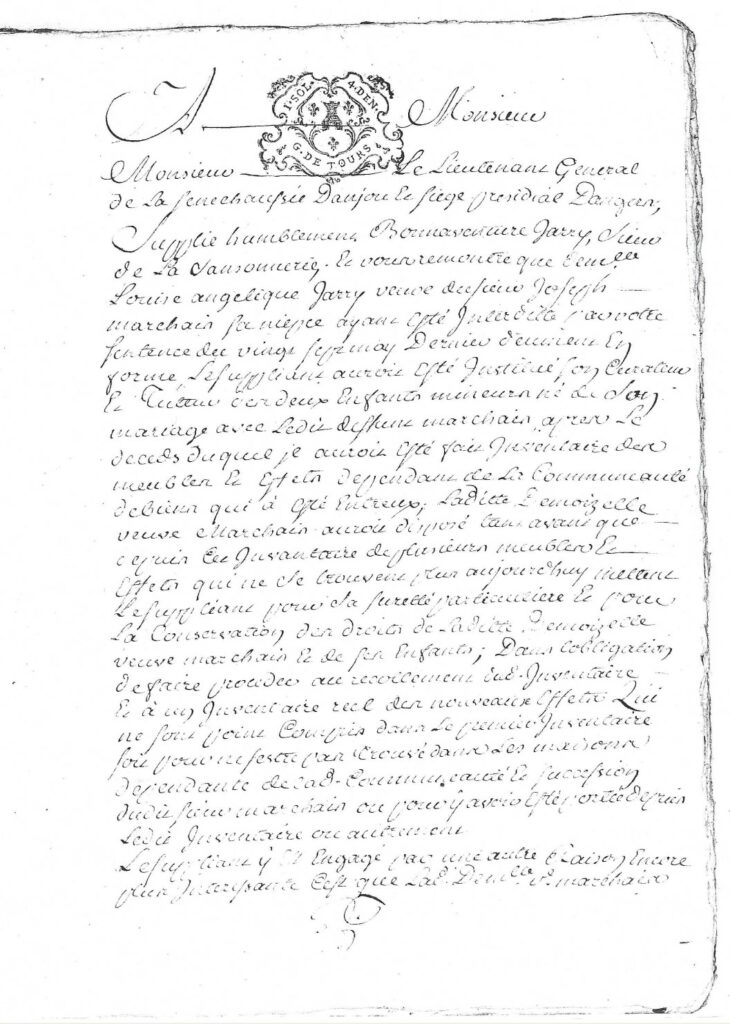 A Monsieur
1·SOL· 4·DEN·
G·DE TOURS
Monsieur Le Lieutenant General
de La Senechaussée Danjou Et Siege presidial Dangers,
Supplie humblement Bonnaventure Jarry, Sieur
de La Sansonnerie, Et vous remontre que demlle
Louise angelique Jarry veuve du sieur Joseph
marchais sa niepce ayant Esté Interditte par votre
sentence du vingt sept may Dernier d'ument En
forme, Le suppliant auroit Esté Institué son Curateur
Et Tutteur des deux Enfants mineurs né de Son
mariage avec Ledit deffunt marchais, apres Le
deceds duquel je auroit Esté fait Inventaire des
meubles Et Effets dependant de La Communauté
de biens qui à Esté Entreux; Laditte Demoizelle
veuve Marchais auroit disposé tant avant que
depuis Cet Inventaire de plusieurs meubles Et
Effets qui ne se trouvent plus aujourdhuy mettent
Le suppliant pour sa suretté particuliere Et pour
La Conservation des droits de Laditte Demoizelle
veuve marchais Et de ses Enfants; Dans Lobligation
de faire proceder au recollement dud. Inventaire
Et à un Inventaire réel des nouveaux Effets Qui
ne sont point Compris dans Le premier Inventaire
soit pour nestre pas trouvé dans Les maisons
dependante de lad. Communauté Et succession
dudit sieur marchais ou pour y avoir Esté porté depuis
Ledit Inventaire ou autrement
Le suppliant y Est Engagé par une autre Raison Encore
plus Interessante C'est que Lad. Demlle ve. marchais